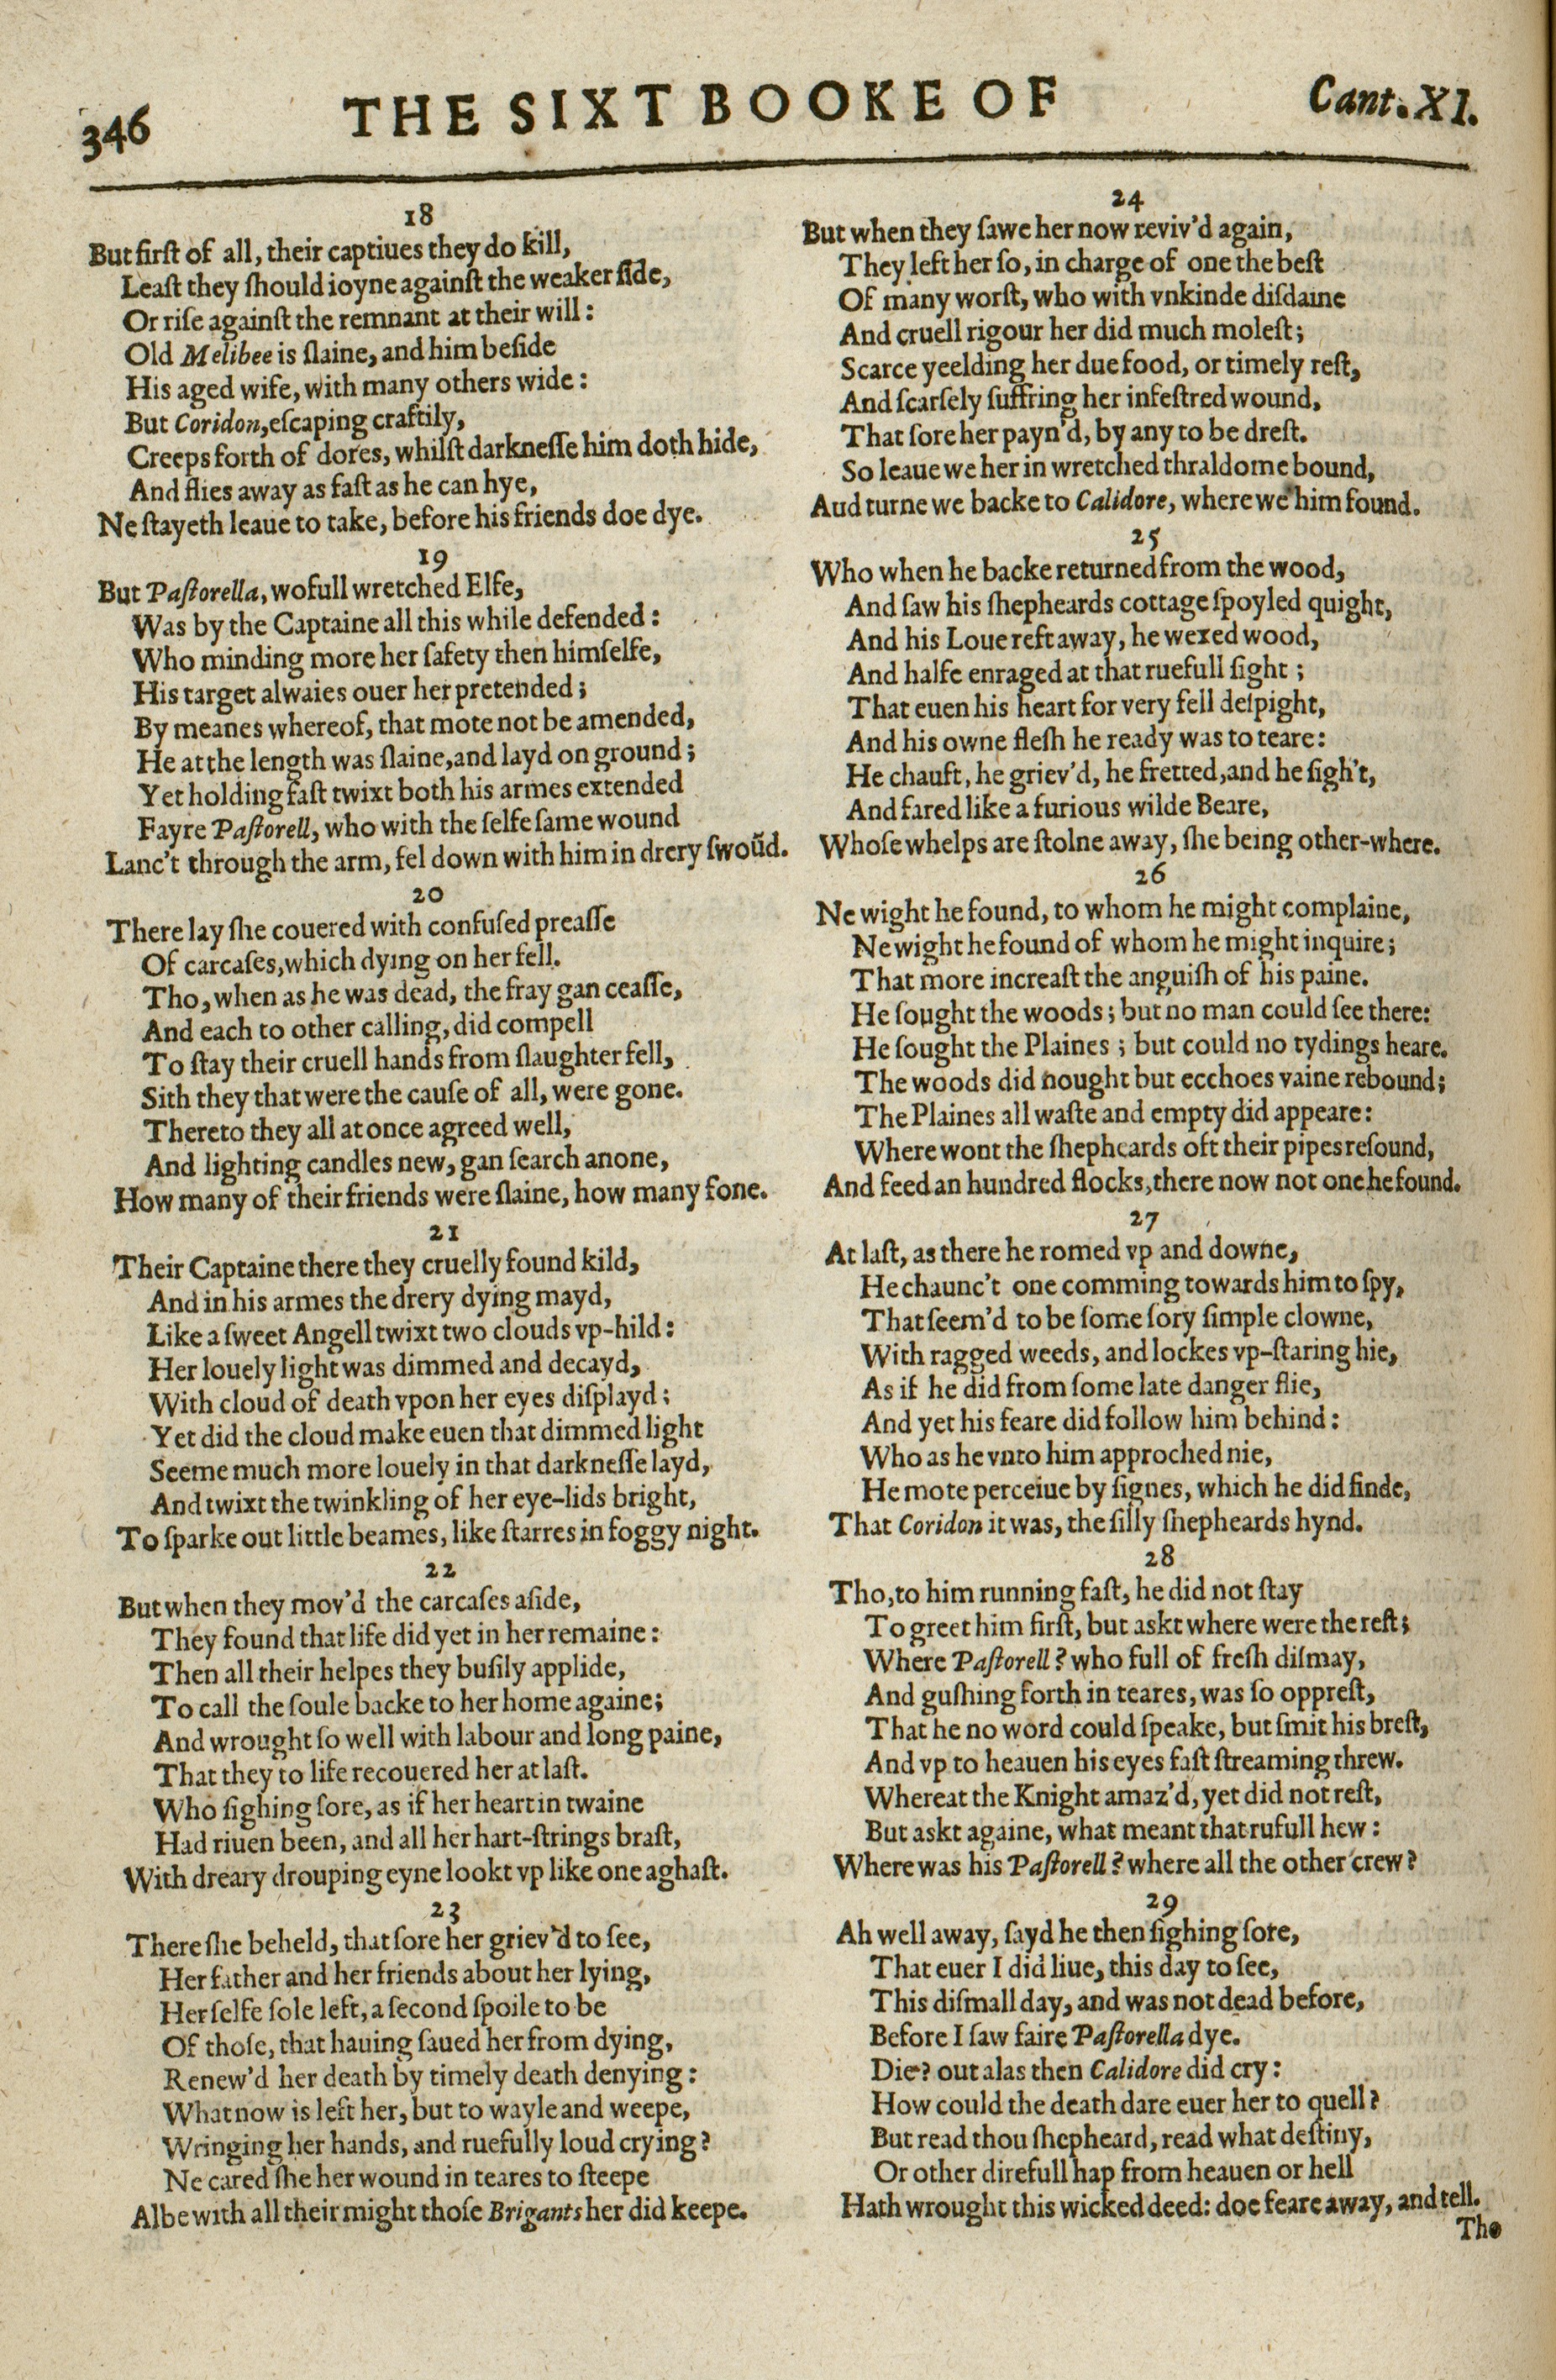 346
THE SIXT BOOKE OF
Cant. XI.
18
But firſt of all, their captiues they do kill,
Leaſt they ſhould ioyne againſt the weaker ſide,
Or riſe againſt the remnant at their will:
Old Melibee is ſlaine, and him beſide
His aged wife, with many others wide:
But Coridon, eſcaping craftily,
Creeps forth of dores, whilſt darkneſſe him doth hide,
And flies away as faſt as he can hye,
Ne ſtayeth leaue to take, before his friends doe dye.
19
But Paſtorella, wofull wretched Elfe,
Was by the Captaine all this while defended:
Who minding more her ſafety then himſelfe,
His target alwaies ouer her pretended;
By meanes whereof, that mote not be amended,
He at the length was ſlaine, and layd on ground;
Yet holding faſt twixt both his armes extended
Fayre Paſtorell, who with the ſelfe ſame wound
Lanc't through the arm, fel down with him in drery ſwoũd.
20
There lay ſhe couered with confuſed preaſſe
Of carcaſes, which dying on her fell.
Tho, when as he was dead, the fray gan ceaſſe,
And each to other calling, did compell
To ſtay their cruell hands from ſlaughter fell,
Sith they that were the cauſe of all, were gone.
Thereto they all at once agreed well,
And lighting candles new, gan ſearch anone,
How many of their friends were ſlaine, how many fone.
21
Their Captaine there they cruelly found kild,
And in his armes the drery dying mayd,
Like a ſweet Angell twixt two clouds vp-hild:
Her louely light was dimmed and decayd,
With cloud of death vpon her eyes diſplayd;
Yet did the cloud make euen that dimmed light
Seeme much more louely in that darkneſſe layd,
And twixt the twinkling of her eye-lids bright,
To ſparke out little beames, like ſtarres in foggy night.
22
But when they mov'd the carcaſes aſide,
They found that life did yet in her remaine:
Then all their helpes they buſily applide,
To call the ſoule backe to her home againe;
And wrought ſo well with labour and long paine,
That they to life recouered her at laſt.
Who ſighing ſore, as if her heart in twaine
Had riuen been, and all her hart-ſtrings braſt,
With dreary drouping eyne lookt vp like one aghaſt.
23
There ſhe beheld, that ſore her griev'd to ſee,
Her father and her friends about her lying,
Her ſelfe ſole left, a ſecond ſpoile to be
Of thoſe, that hauing ſaued her from dying,
Renew'd her death by timely death denying:
What now is left her, but to wayle and weepe,
Wringing her hands, and ruefully loud crying?
Ne cared ſhe her wound in teares to ſteepe
Albe with all their might thoſe Brigants her did keepe.
24
But when they ſawe her now reviv'd again,
They left her ſo, in charge of one the beſt
Of many worſt, who with vnkinde diſdaine
And cruell rigour her did much moleſt;
Scarce yeelding her due food, or timely reſt,
And ſcarſely ſuffring her infeſtred wound,
That ſore her payn'd, by any to be dreſt.
So leaue we her in wretched thraldome bound,
Aud turne we backe to Calidore, where we him found.
25
Who when he backe returned from the wood,
And ſaw his ſhepheards cottage ſpoyled quight,
And his Loue reft away, he wexed wood,
And halfe enraged at that ruefull ſight;
That euen his heart for very fell deſpight,
And his owne fleſh he ready was to teare:
He chauft, he griev'd, he fretted, and he ſigh't,
And fared like a furious wilde Beare,
Whoſe whelps are ſtolne away, ſhe being other-where.
26
Ne wight he found, to whom he might complaine,
Ne wight he found of whom he might inquire;
That more increaſt the anguiſh of his paine.
He ſought the woods; but no man could ſee there:
He ſought the Plaines; but could no tydings heare.
The woods did nought but ecchoes vaine rebound;
The Plaines all waſte and empty did appeare:
Where wont the ſhepheards oft their pipes reſound,
And feed an hundred flocks, there now not one he found.
27
At laſt, as there he romed vp and downe,
He chaunc't one comming towards him to ſpy,
That ſeem'd to be ſome ſory ſimple clowne,
With ragged weeds, and lockes vp-ſtaring hie,
As if he did from ſome late danger flie,
And yet his feare did follow him behind:
Who as he vnto him approched nie,
He mote perceiue by ſignes, which he did finde,
That Coridon it was, the ſilly ſhepheards hynd.
28
Tho, to him running faſt, he did not ſtay
To greet him firſt, but askt where were the reſt;
Where Paſtorell? who full of freſh diſmay,
And guſhing forth in teares, was ſo oppreſt,
That he no word could ſpeake, but ſmit his breſt,
And vp to heauen his eyes faſt ſtreaming threw.
Whereat the Knight amaz'd, yet did not reſt,
But askt againe, what meant that rufull hew:
Where was his Paſtorell? where all the other crew?
29
Ah well away, ſayd he then ſighing ſore,
That euer I did liue, this day to ſee,
This diſmall day, and was not dead before,
Before I ſaw faire Paſtorella dye.
Die? out alas then Calidore did cry:
How could the death dare euer her to quell?
But read thou ſhepheard, read what deſtiny,
Or other direfull hap from heauen or hell
Hath wrought this wicked deed: doe feare away, and tell.
Tho